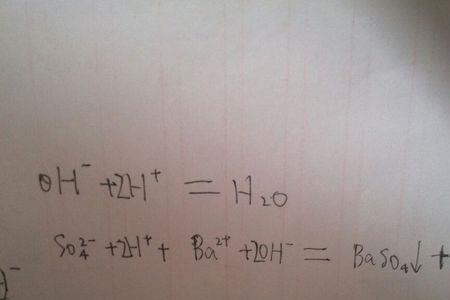 OH⁻ + 2H⁺ = H₂O
SO₄²⁻ + 2H⁺ + Ba²⁺ + 2OH⁻ = BaSO₄↓ +